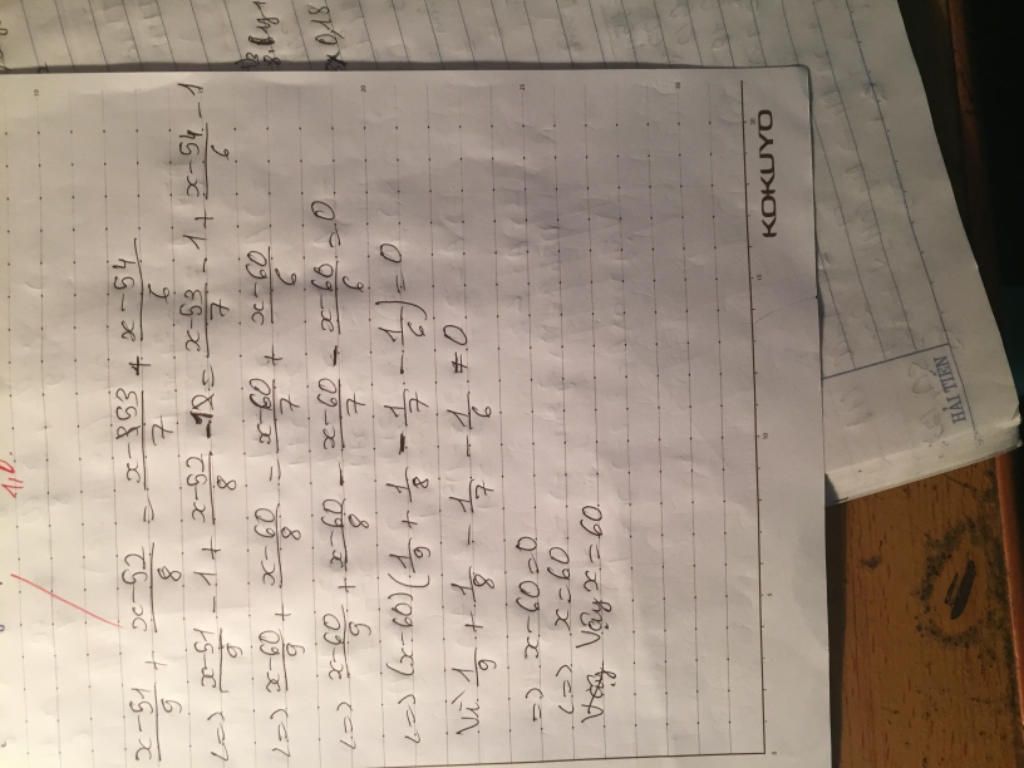 (x-51)/9 + (x-52)/8 = (x-53)/7 + (x-54)/6
<=> (x-51)/9 - 1 + (x-52)/8 - 1 = (x-53)/7 - 1 + (x-54)/6 - 1
<=> (x-60)/9 + (x-60)/8 = (x-60)/7 + (x-60)/6
<=> (x-60)/9 + (x-60)/8 - (x-60)/7 - (x-60)/6 = 0
<=> (x-60)(1/9 + 1/8 - 1/7 - 1/6) = 0
Vì 1/9 + 1/8 - 1/7 - 1/6 ≠ 0
=> x-60=0
<=> x=60
Vậy x=60.
KOKUYO
HẢI TIẾN